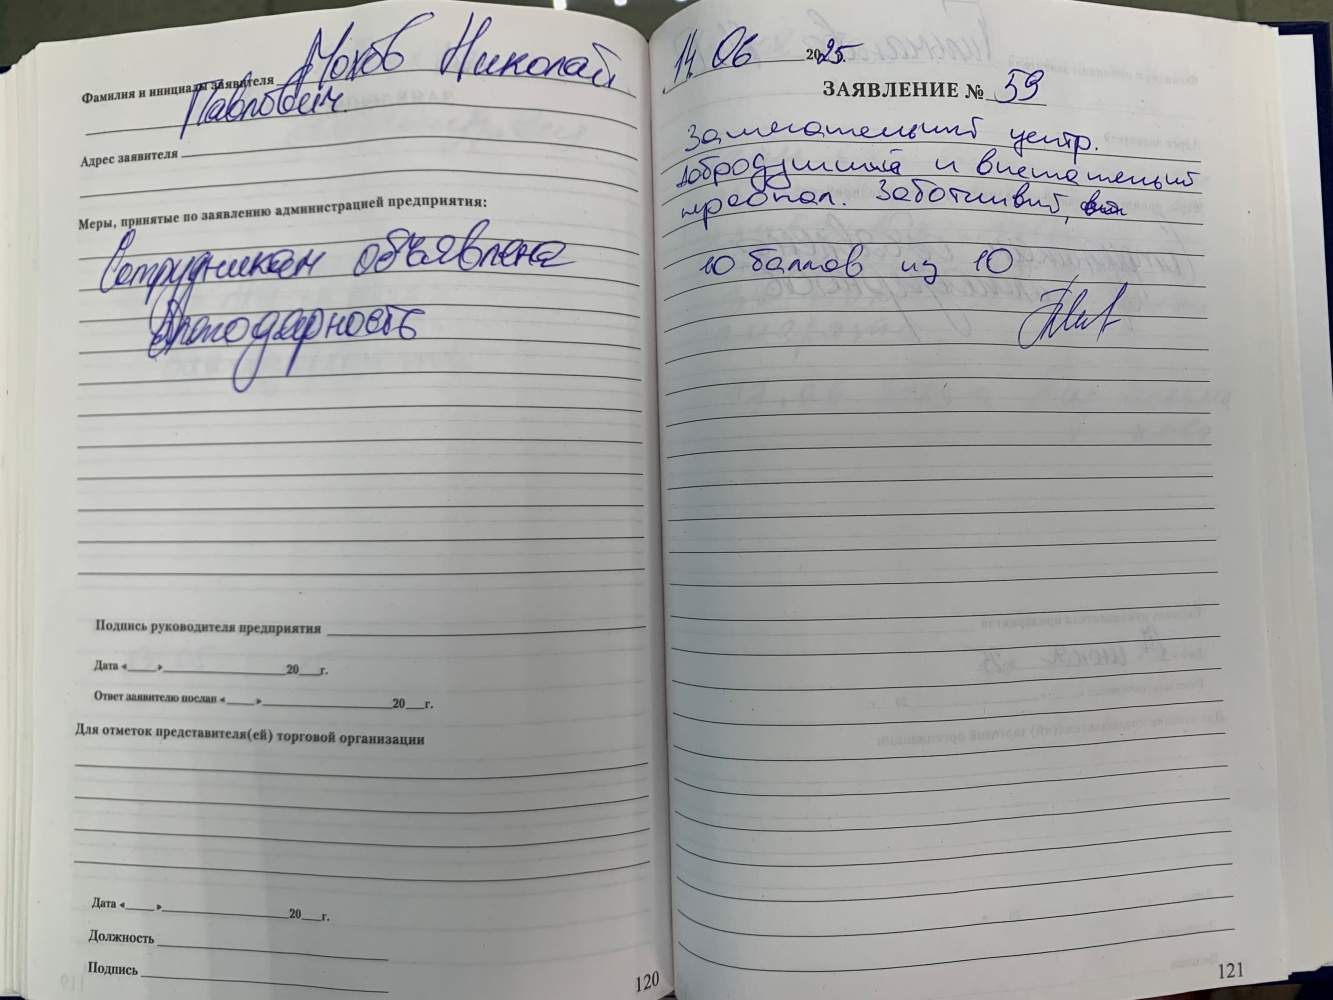 Фамилия и инициалы заявителя Мохов Николай
Павлович
Адрес заявителя
Меры, принятые по заявлению администрацией предприятия:
Сотрудникам объявлена
Благодарность
Подпись руководителя предприятия
Дата «____»____________20___г.
Ответ заявителю послан «____»____________20___г.
Для отметок представителя(ей) торговой организации
Дата «____»____________20___г.
Должность
Подпись
120
14 06 2025.
ЗАЯВЛЕНИЕ № 59
Замечательный центр.
Добродушный и внимательный
персонал. Заботливый,
10 баллов из 10
121